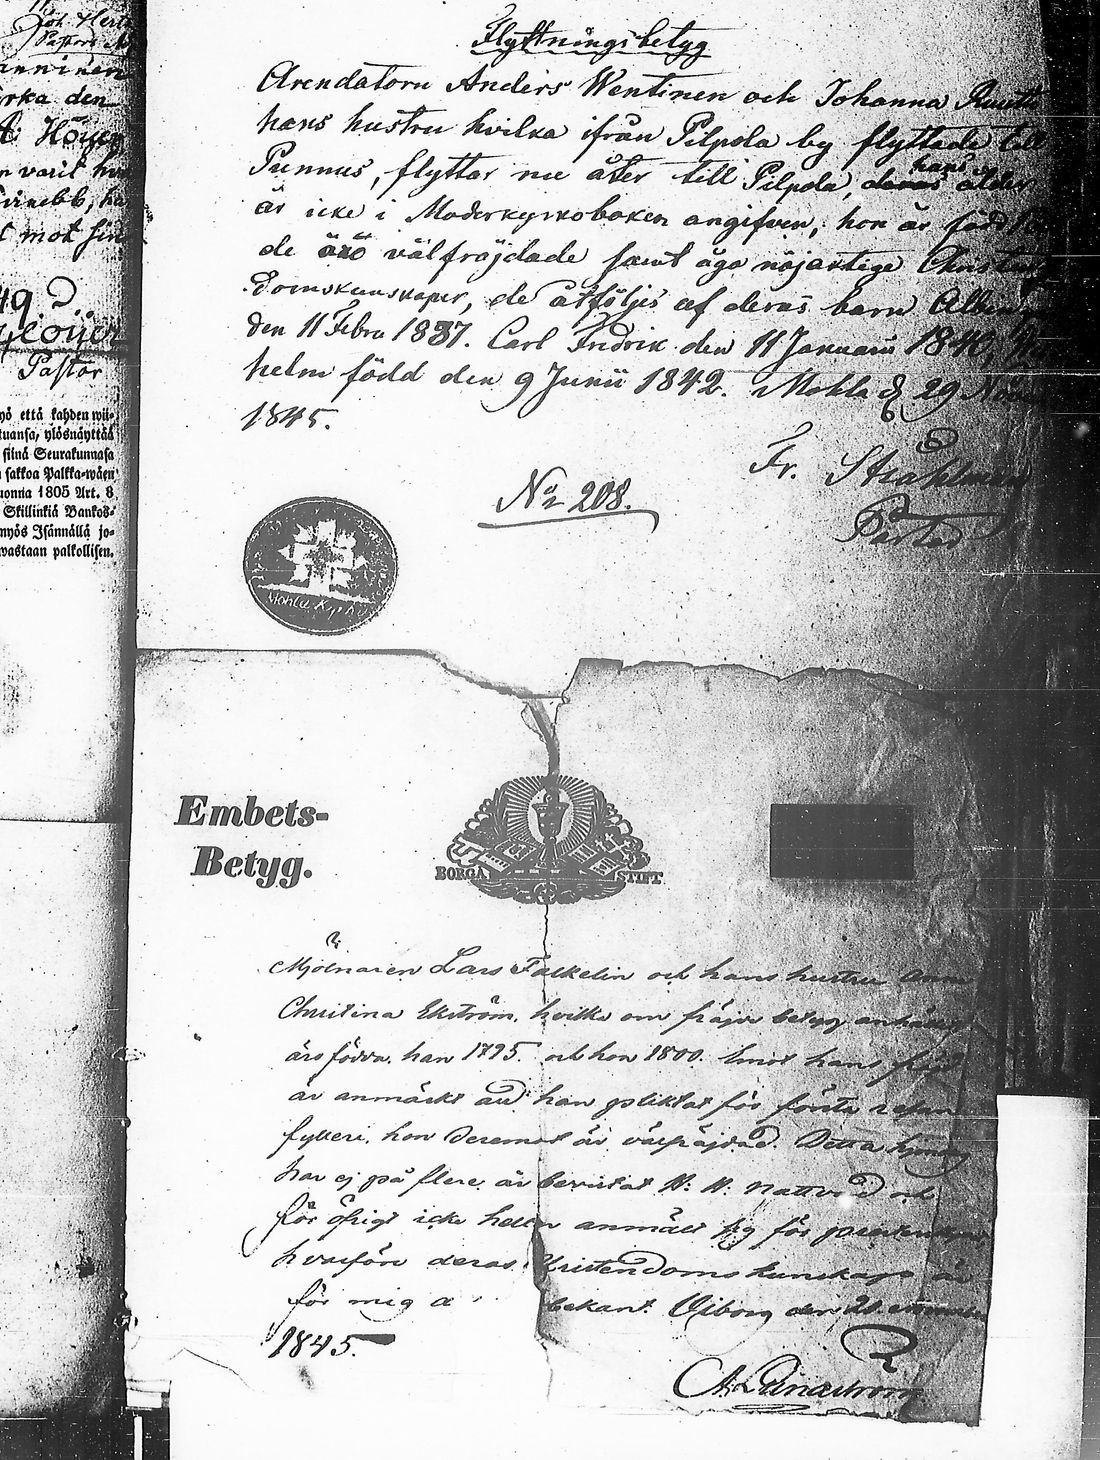 Joh Hert
Pastors
anninen
rka den
Höijer
n varit
mot sin
49
Pastor
yö että kahden wii-
tuansa, ylösnäyttää
siinä Seurakunnasa
sakkoa Palkka-wäen
uonna 1805 Art. 8
Skillinkiä Bankos-
myös Isännällä jo-
wastaan palkollisen.
Flyttningsbetyg
Arendatorn Anders Wentinen och Johanna Ruuttu
hans hustru hvilka ifrån Pilpola by flyttade till
Punnus, flyttar nu åter till Pilpola, deras hans ålder
är icke i Moderkyrkoboken angifven, hon är född
de äro välfräjdade samt äga nöjaktige Christen
Domskunskaper, de åtföljes af deras barn Albin
den 11 Febru 1837. Carl Fredrik den 11 Januarii 1840,
helm född den 9 Junii 1842. Mohla d 29 Nov
1845.
Fr. Ståhlman
Pastor
No 208.
Mohla Kyrko
Embets-
Betyg.
BORGÅ STIFT
Mjölnaren Lars Falkelin och hans hustru Anna
Christina Ekström, hvilka om fräjde betyg anhållit
äro födda, han 1795. och hon 1800. Emot hans fräjd
är anmärkt att han pliktat för första resan
fylleri, hon deremot är välfräjdad. Detta hjonelag
har ej på flere år bevistat H: H: nattvard och
för öfrigt icke heller anmält sig för
hvarföre deras Kristendoms kunskap är
för mig o bekant. Viborg den
1845.
A: Lindström